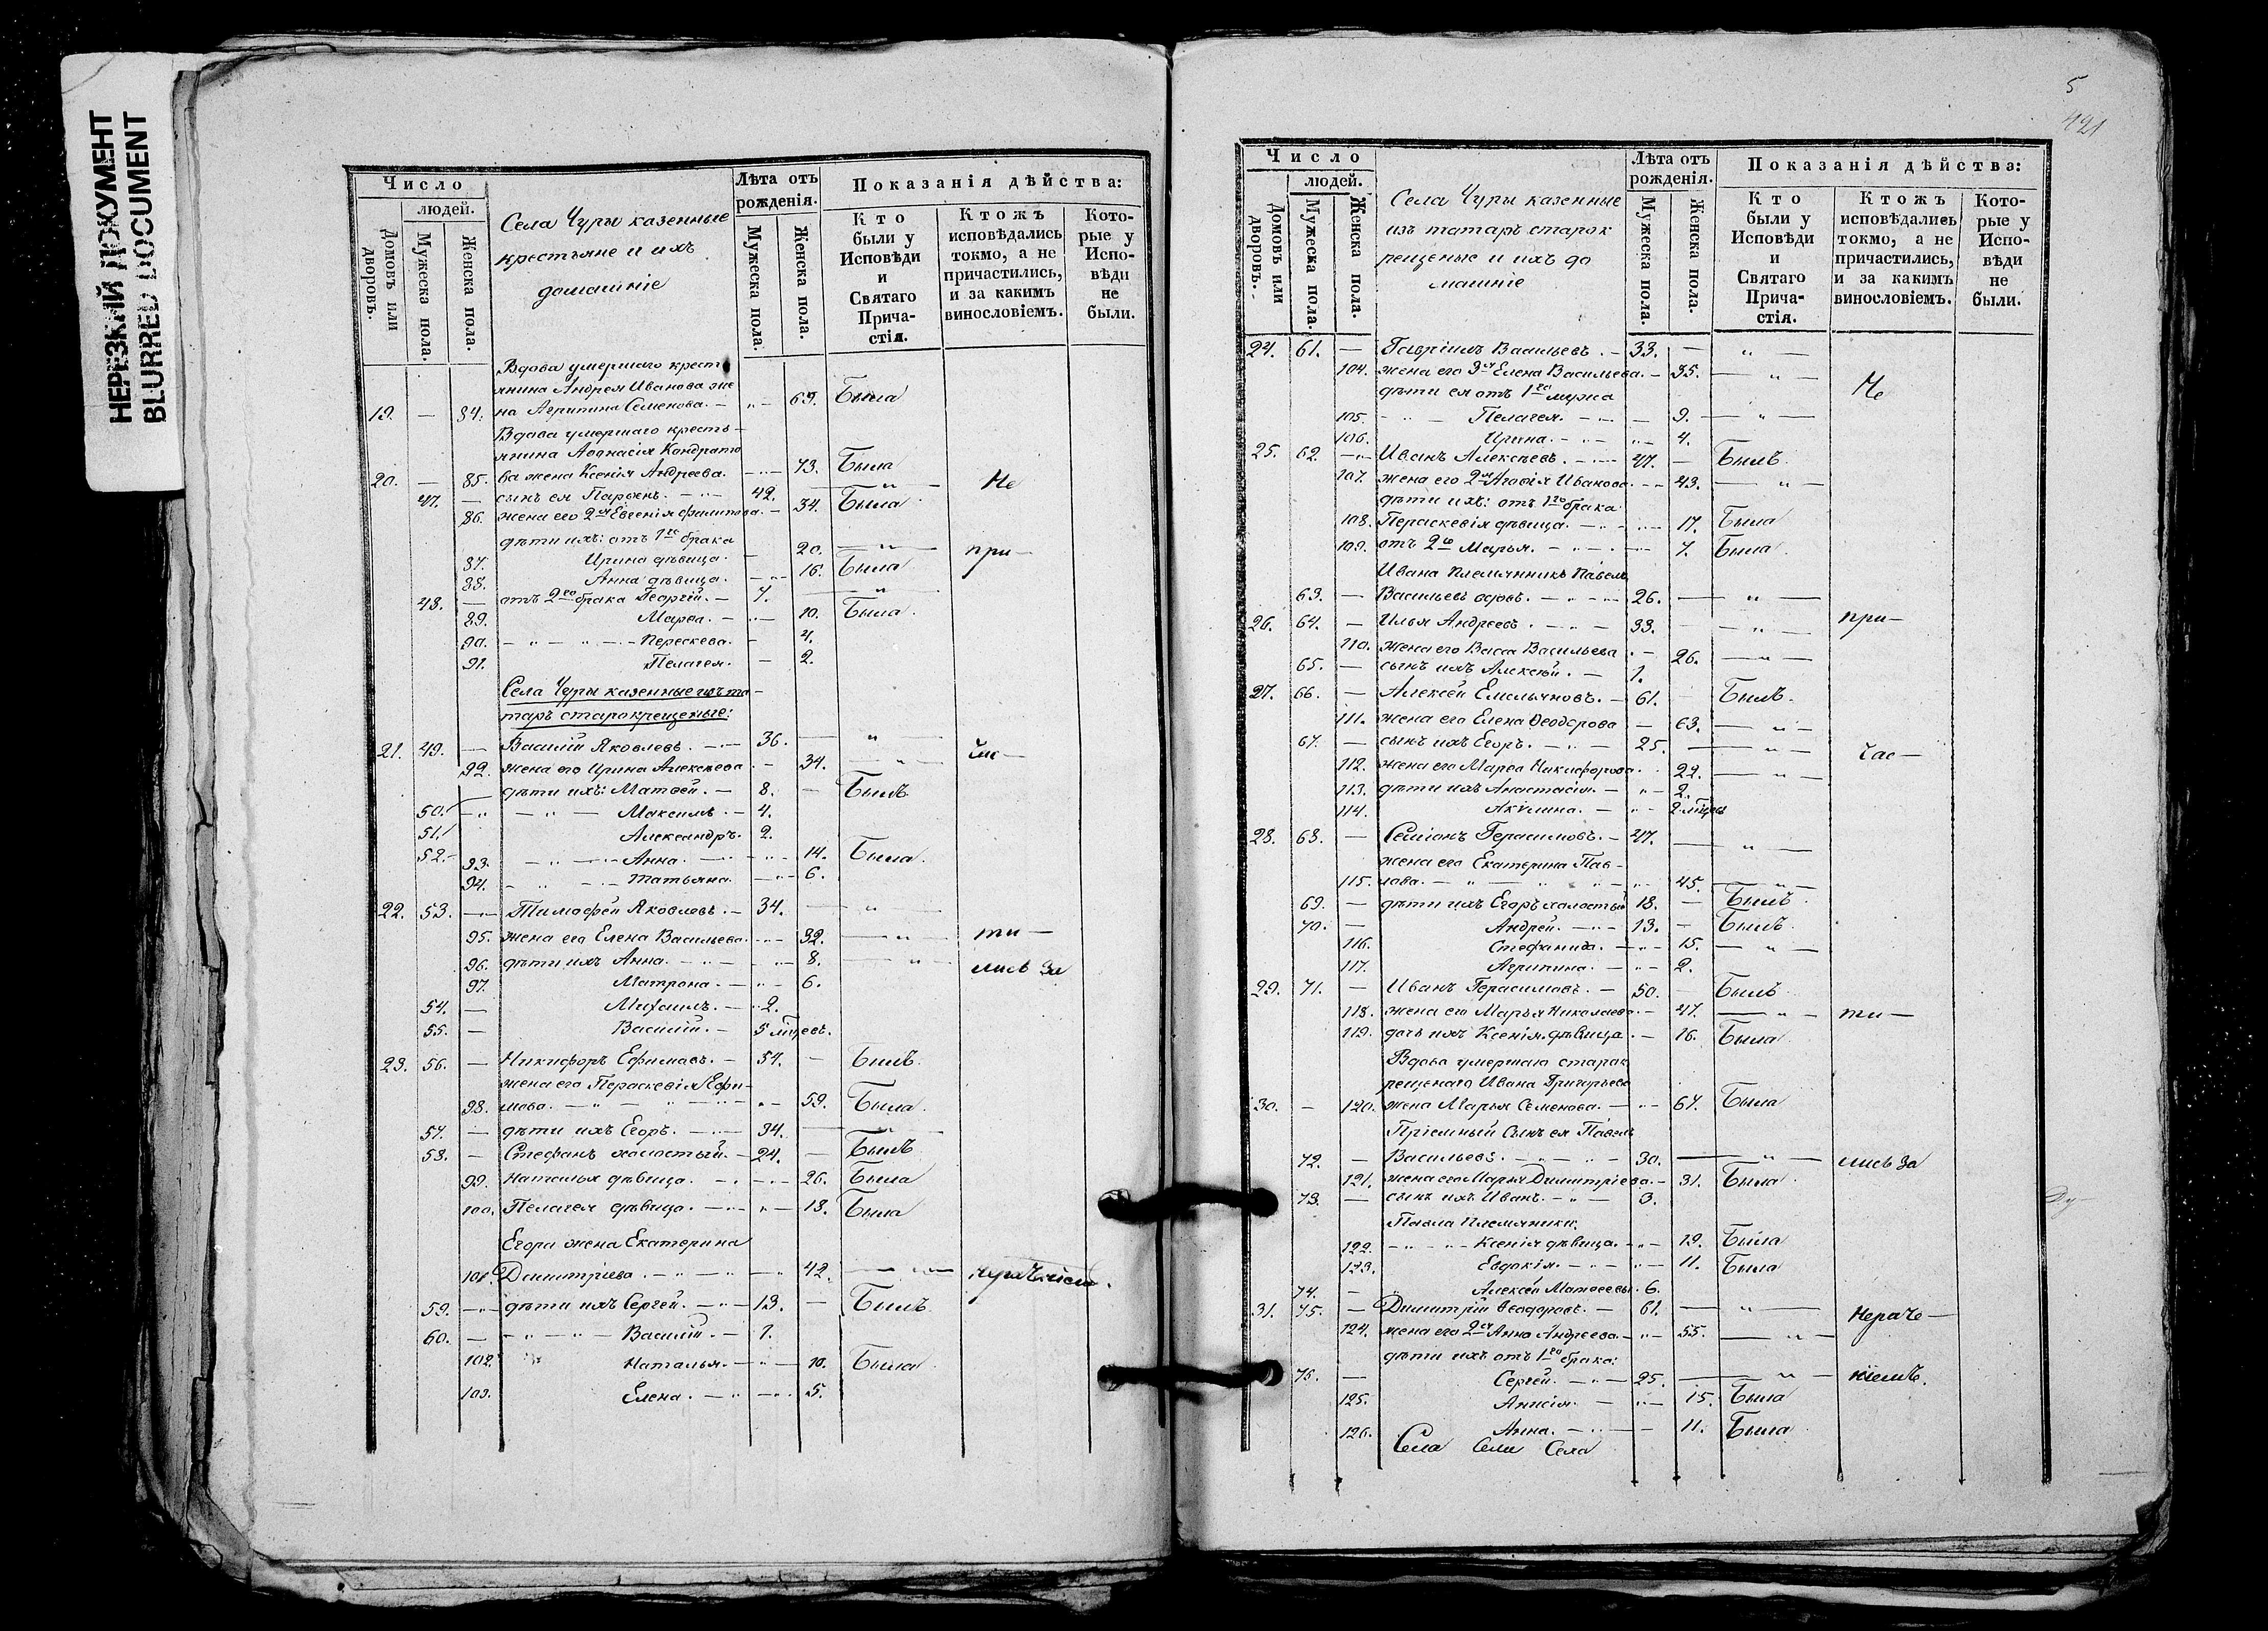 НЕРЕЗКИЙ ДОКУМЕНТ
BLURRED DOCUMENT
Число
людей.
Домовъ или дворовъ.
Мужеска пола.
Женска пола.
Села Чуры казенные
крестьяне и ихъ
домашніе
Лѣта отъ рожденія.
Мужеска пола.
Женска пола.
Показанія дѣйства:
Кто были у Исповѣди и Святаго Причастія.
Ктожъ исповѣдались токмо, а не причастились, и за какимъ винословіемъ.
Которые у Исповѣди не были.
Вдова умершаго кресть
янина Андрея Иванова же
19. — 84. на Агрипина Семенова. — 69. Была
Вдова умершаго кресть-
янина Аѳанасія Кондрато
20. — 85. ва жена Ксенія Андреева. 73. Была
47. — сынъ ея Парѳенъ. 42. — " — Не
86. жена его 2ая Евгенія Филипова. — 34. Была
дѣти ихъ: отъ 1го брака
87. Ирина дѣвица. — 20. — " — при—
88. Анна дѣвица. 16. Была
48. — отъ 2го брака Георгій. — 7. — " —
89. Марѳа. — 10. Была.
90. — " — " — Перескева. — 4.
91. Пелагея. — 2.
Села Чуры казенные изъ та-
таръ старокрещеные:
21. 49. — Василій Яковлевъ. — 36. — " — час—
92. жена его Ирина Алексѣева — 34. — " —
— дѣти ихъ: Матвѣй. — 8. — Былъ
50. — " — Максимъ. — 4.
51. Александръ. 2.
52. 93. — " — Анна. — 14. Была.
94. — " — Татьяна. — 6.
22. 53. — Тимофѣй Яковлевъ. — 34. — " —
95. жена его Елена Васильева. — 32. — " — ти—
96. дѣти ихъ Анна. — 8. — " — лись за
97. Матрона. — 6.
54. — Михаилъ. — 2.
55. — Василій. — 5 мѣсецъ.
23. 56. — Никифоръ Ефимовъ. — 57. — былъ.
жена его Параскевія Ефи-
98. мова. — " — 59. Была.
57. — дѣти ихъ Егоръ. — 34. — " —
58. — Стефанъ холостый. — 24. — Былъ
99. Наталья дѣвица. — 26. Была
100. Пелагея дѣвица. — 18. Была
Егора жена Екатерина
101. Димитріева. — " — 42. — " — нераченіемъ.
59. — дѣти ихъ Сергей. — 13. — Былъ
60. — " — Василій. — 1.
102. Наталья. — " — 10. Была
103. Елена. — " — 5.
5
421
Число
людей.
Домовъ или дворовъ.
Мужеска пола.
Женска пола.
Села Чуры казенные
изъ татаръ старок
рещеные и ихъ до
машніе
Лѣта отъ рожденія.
Мужеска пола.
Женска пола.
Показанія дѣйства:
Кто были у Исповѣди и Святаго Причастія.
Ктожъ исповѣдались токмо, а не причастились, и за какимъ винословіемъ.
Которые у Исповѣди не были.
24. 61. — Гавріилъ Васильевъ. — 33. — " —
104. жена его 3ая Елена Васильева. — 35. — " — Не
дѣти ея отъ 1го мужа
105. — Пелагея. — 9. — " —
106. Ирина. — " — 4.
25. 62. — Иванъ Алексѣевъ. — 47. — Былъ.
107. жена его 2ая Агафія Иванова. — 43. — " —
дѣти ихъ: отъ 1го брака
108. Пераскевія дѣвица. — " — 17. Была
109. отъ 2го Марья. — " — 7. Была.
Ивана племянникъ Павелъ
63. — Васильевъ вдовъ. — 26. — " —
26. 64. — Илья Андреевъ. — 33. — " — при—
110. жена его Васса Васильева — 26. — " —
65. — сынъ ихъ Алексѣй. — 1.
27. 66. — Алексѣй Емельяновъ. — 61. — Былъ.
111. жена его Елена Ѳеодорова — 63. — " —
67. — сынъ ихъ Егоръ. — 25. — " — час—
112. жена его Марѳа Никифорова. 22. — " —
113. дѣти ихъ Анастасія. — " — 2.
114. Акилина. — " — 2 мѣсец
28. 68. — Семіонъ Герасимовъ. — 47. — " —
жена его Екатерина Пав-
115. лова. — " — 45. — " —
69. — дѣти ихъ Егоръ холостый 18. — Былъ.
70. — Андрей. — 13. — Былъ.
116. Стефанида. — 15. — " —
117. Агрипина. — 2.
29. 71. — Иванъ Герасимовъ. — 50. — Былъ
118. жена его Марья Николаева. — 47. — " — ти—
119. дочь ихъ Ксенія дѣвица. — 16. Была
Вдова умершаго старок
рещенаго Ивана Григорьева
30. — 120. жена Марья Семенова. — 67. Была
Пріемный сынъ ея Павелъ
72. — Васильевъ. — " — 30. — " — лись за
121. жена его Марья Димитріева. — 31. Была.
73. — сынъ ихъ Иванъ. — " — 3.
Павла племянники.
122. — " — Ксенія дѣвица. — 19. Была
123. Евдокія. — " — 11. Была
74. — Алексѣй Матвеевъ. 6.
31. 75. — Димитрій Ѳеодоровъ. — 61. — " — нераче—
124. жена его 2ая Анна Андреева. — 55. — " —
дѣти ихъ отъ 1го брака:
76. — Сергей. — 25. — " — ніемъ.
125. Анисія. — 15. Была
126. Анна. — 11. Была
Села Села Села